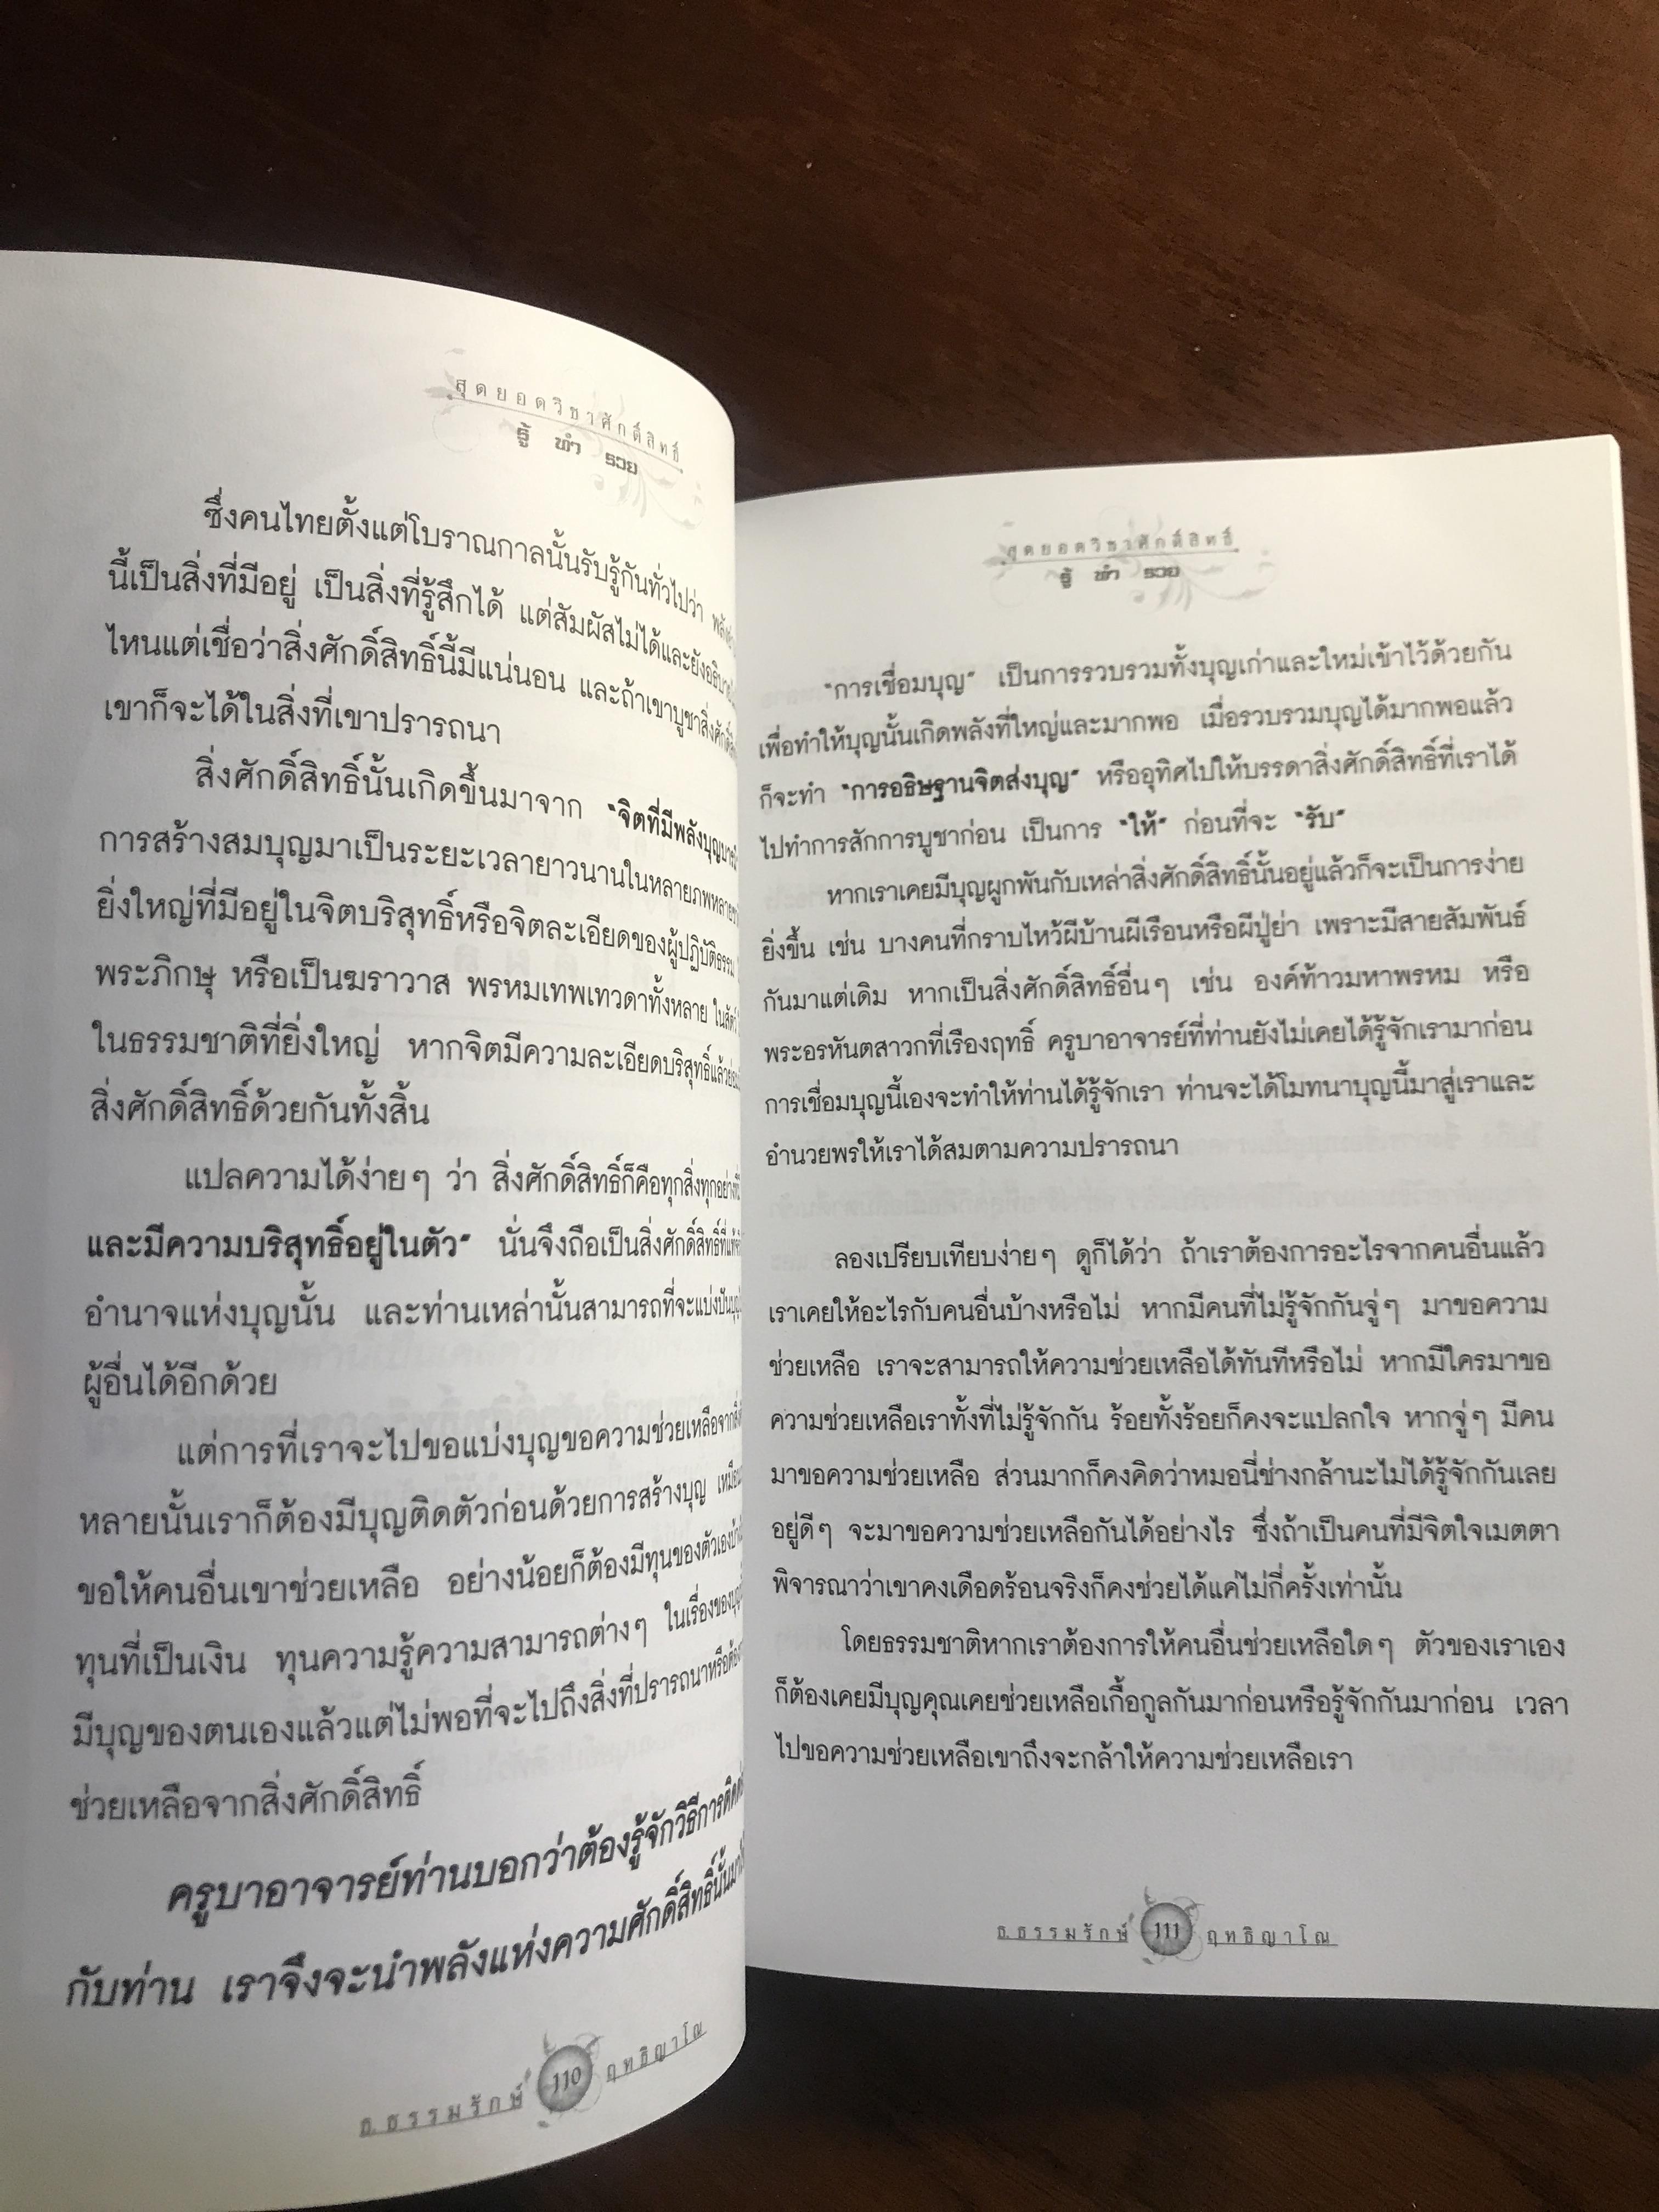 สุดยอดวิชาศักดิ์สิทธิ์
รู้ ทำ รวย
ซึ่งคนไทยตั้งแต่โบราณกาลนั้นรับรู้กันทั่วไปว่า
นี้เป็นสิ่งที่มีอยู่ เป็นสิ่งที่รู้สึกได้ แต่สัมผัสไม่ได้และยังอธิบาย
ไหนแต่เชื่อว่าสิ่งศักดิ์สิทธิ์นี้มีแน่นอน และถ้าเขาบูชาสิ่งศักดิ์
เขาก็จะได้ในสิ่งที่เขาปรารถนา
สิ่งศักดิ์สิทธิ์นั้นเกิดขึ้นมาจาก "จิตที่มีพลังบุญบารมี
การสร้างสมบุญมาเป็นระยะเวลายาวนานในหลายภพหลาย
ยิ่งใหญ่ที่มีอยู่ในจิตบริสุทธิ์หรือจิตละเอียดของผู้ปฏิบัติธรรม
พระภิกษุ หรือเป็นฆราวาส พรหมเทพเทวดาทั้งหลาย ในสัตว์
ในธรรมชาติที่ยิ่งใหญ่ หากจิตมีความละเอียดบริสุทธิ์แล้ว
สิ่งศักดิ์สิทธิ์ด้วยกันทั้งสิ้น
แปลความได้ง่ายๆ ว่า สิ่งศักดิ์สิทธิ์ก็คือทุกสิ่งทุกอย่าง
และมีความบริสุทธิ์อยู่ในตัว" นั่นจึงถือเป็นสิ่งศักดิ์สิทธิ์
อำนาจแห่งบุญนั้น และท่านเหล่านั้นสามารถที่จะแบ่งปัน
ผู้อื่นได้อีกด้วย
แต่การที่เราจะไปขอแบ่งบุญขอความช่วยเหลือจาก
หลายนั้นเราก็ต้องมีบุญติดตัวก่อนด้วยการสร้างบุญ เหมือน
ขอให้คนอื่นเขาช่วยเหลือ อย่างน้อยก็ต้องมีทุนของตัวเอง
ทุนที่เป็นเงิน ทุนความรู้ความสามารถต่างๆ ในเรื่องของ
มีบุญของตนเองแล้วแต่ไม่พอที่จะไปถึงสิ่งที่ปรารถนาหรือ
ช่วยเหลือจากสิ่งศักดิ์สิทธิ์
ครูบาอาจารย์ท่านบอกว่าต้องรู้จักวิธีการติดต่อ
กับท่าน เราจึงจะนำพลังแห่งความศักดิ์สิทธิ์นั้น
ธ.ธรรมรักษ์ 110 ฤทธิญาโณ
สุดยอดวิชาศักดิ์สิทธิ์
รู้ ทำ รวย
"การเชื่อมบุญ" เป็นการรวบรวมทั้งบุญเก่าและใหม่เข้าไว้ด้วยกัน
เพื่อทำให้บุญนั้นเกิดพลังที่ใหญ่และมากพอ เมื่อรวบรวมบุญได้มากพอแล้ว
ก็จะทำ "การอธิษฐานจิตส่งบุญ" หรืออุทิศไปให้บรรดาสิ่งศักดิ์สิทธิ์ที่เราได้
ไปทำการสักการบูชาก่อน เป็นการ "ให้" ก่อนที่จะ "รับ"
หากเราเคยมีบุญผูกพันกับเหล่าสิ่งศักดิ์สิทธิ์นั้นอยู่แล้วก็จะเป็นการง่าย
ยิ่งขึ้น เช่น บางคนที่กราบไหว้ผีบ้านผีเรือนหรือผีปู่ย่า เพราะมีสายสัมพันธ์
กันมาแต่เดิม หากเป็นสิ่งศักดิ์สิทธิ์อื่นๆ เช่น องค์ท้าวมหาพรหม หรือ
พระอรหันตสาวกที่เรืองฤทธิ์ ครูบาอาจารย์ที่ท่านยังไม่เคยได้รู้จักเรามาก่อน
การเชื่อมบุญนี้เองจะทำให้ท่านได้รู้จักเรา ท่านจะได้โมทนาบุญนี้มาสู่เราและ
อำนวยพรให้เราได้สมตามความปรารถนา
ลองเปรียบเทียบง่ายๆ ดูก็ได้ว่า ถ้าเราต้องการอะไรจากคนอื่นแล้ว
เราเคยให้อะไรกับคนอื่นบ้างหรือไม่ หากมีคนที่ไม่รู้จักกันจู่ๆ มาขอความ
ช่วยเหลือ เราจะสามารถให้ความช่วยเหลือได้ทันทีหรือไม่ หากมีใครมาขอ
ความช่วยเหลือเราทั้งที่ไม่รู้จักกัน ร้อยทั้งร้อยก็คงจะแปลกใจ หากจู่ๆ มีคน
มาขอความช่วยเหลือ ส่วนมากก็คงคิดว่าหมอนี่ช่างกล้านะไม่ได้รู้จักกันเลย
อยู่ดีๆ จะมาขอความช่วยเหลือกันได้อย่างไร ซึ่งถ้าเป็นคนที่มีจิตใจเมตตา
พิจารณาว่าเขาคงเดือดร้อนจริงก็คงช่วยได้แค่ไม่กี่ครั้งเท่านั้น
โดยธรรมชาติหากเราต้องการให้คนอื่นช่วยเหลือใดๆ ตัวของเราเอง
ก็ต้องเคยมีบุญคุณเคยช่วยเหลือเกื้อกูลกันมาก่อนหรือรู้จักกันมาก่อน เวลา
ไปขอความช่วยเหลือเขาถึงจะกล้าให้ความช่วยเหลือเรา
ธ.ธรรมรักษ์ 111 ฤทธิญาโณ